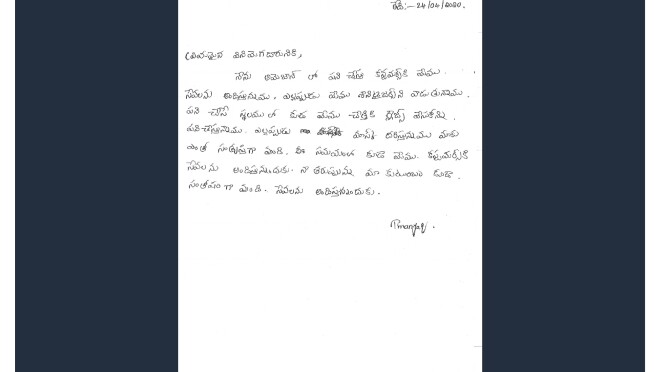 తేదీ:- 24/04/2020.
ప్రియమైన వినియోగదారునికి,
నేను అమెజాన్ లో పని చేస్తూ కస్టమర్స్‌కి మేము
సేవలను అందిస్తున్నాము. ఎల్లప్పుడు మేము శానిటైజర్స్‌ని వాడుతున్నాము.
పని చేసే స్థలములో కుడ మేము చేతికి గ్లౌజ్స్ వేసుకొని
పనిచేస్తున్నాము. ఎల్లప్పుడు మాస్క్ ధరిస్తున్నాము మాకు
ఎంతో సంతృప్తిగా ఉంది. ఈ సమయంలో కూడా మేము కస్టమర్స్‌కి
సేవలను అందిస్తున్నందుకు. నా తరుపున మా కుటుంబం కూడా
సంతోషం గా ఉంది. సేవలను అందిస్తున్నందుకు.